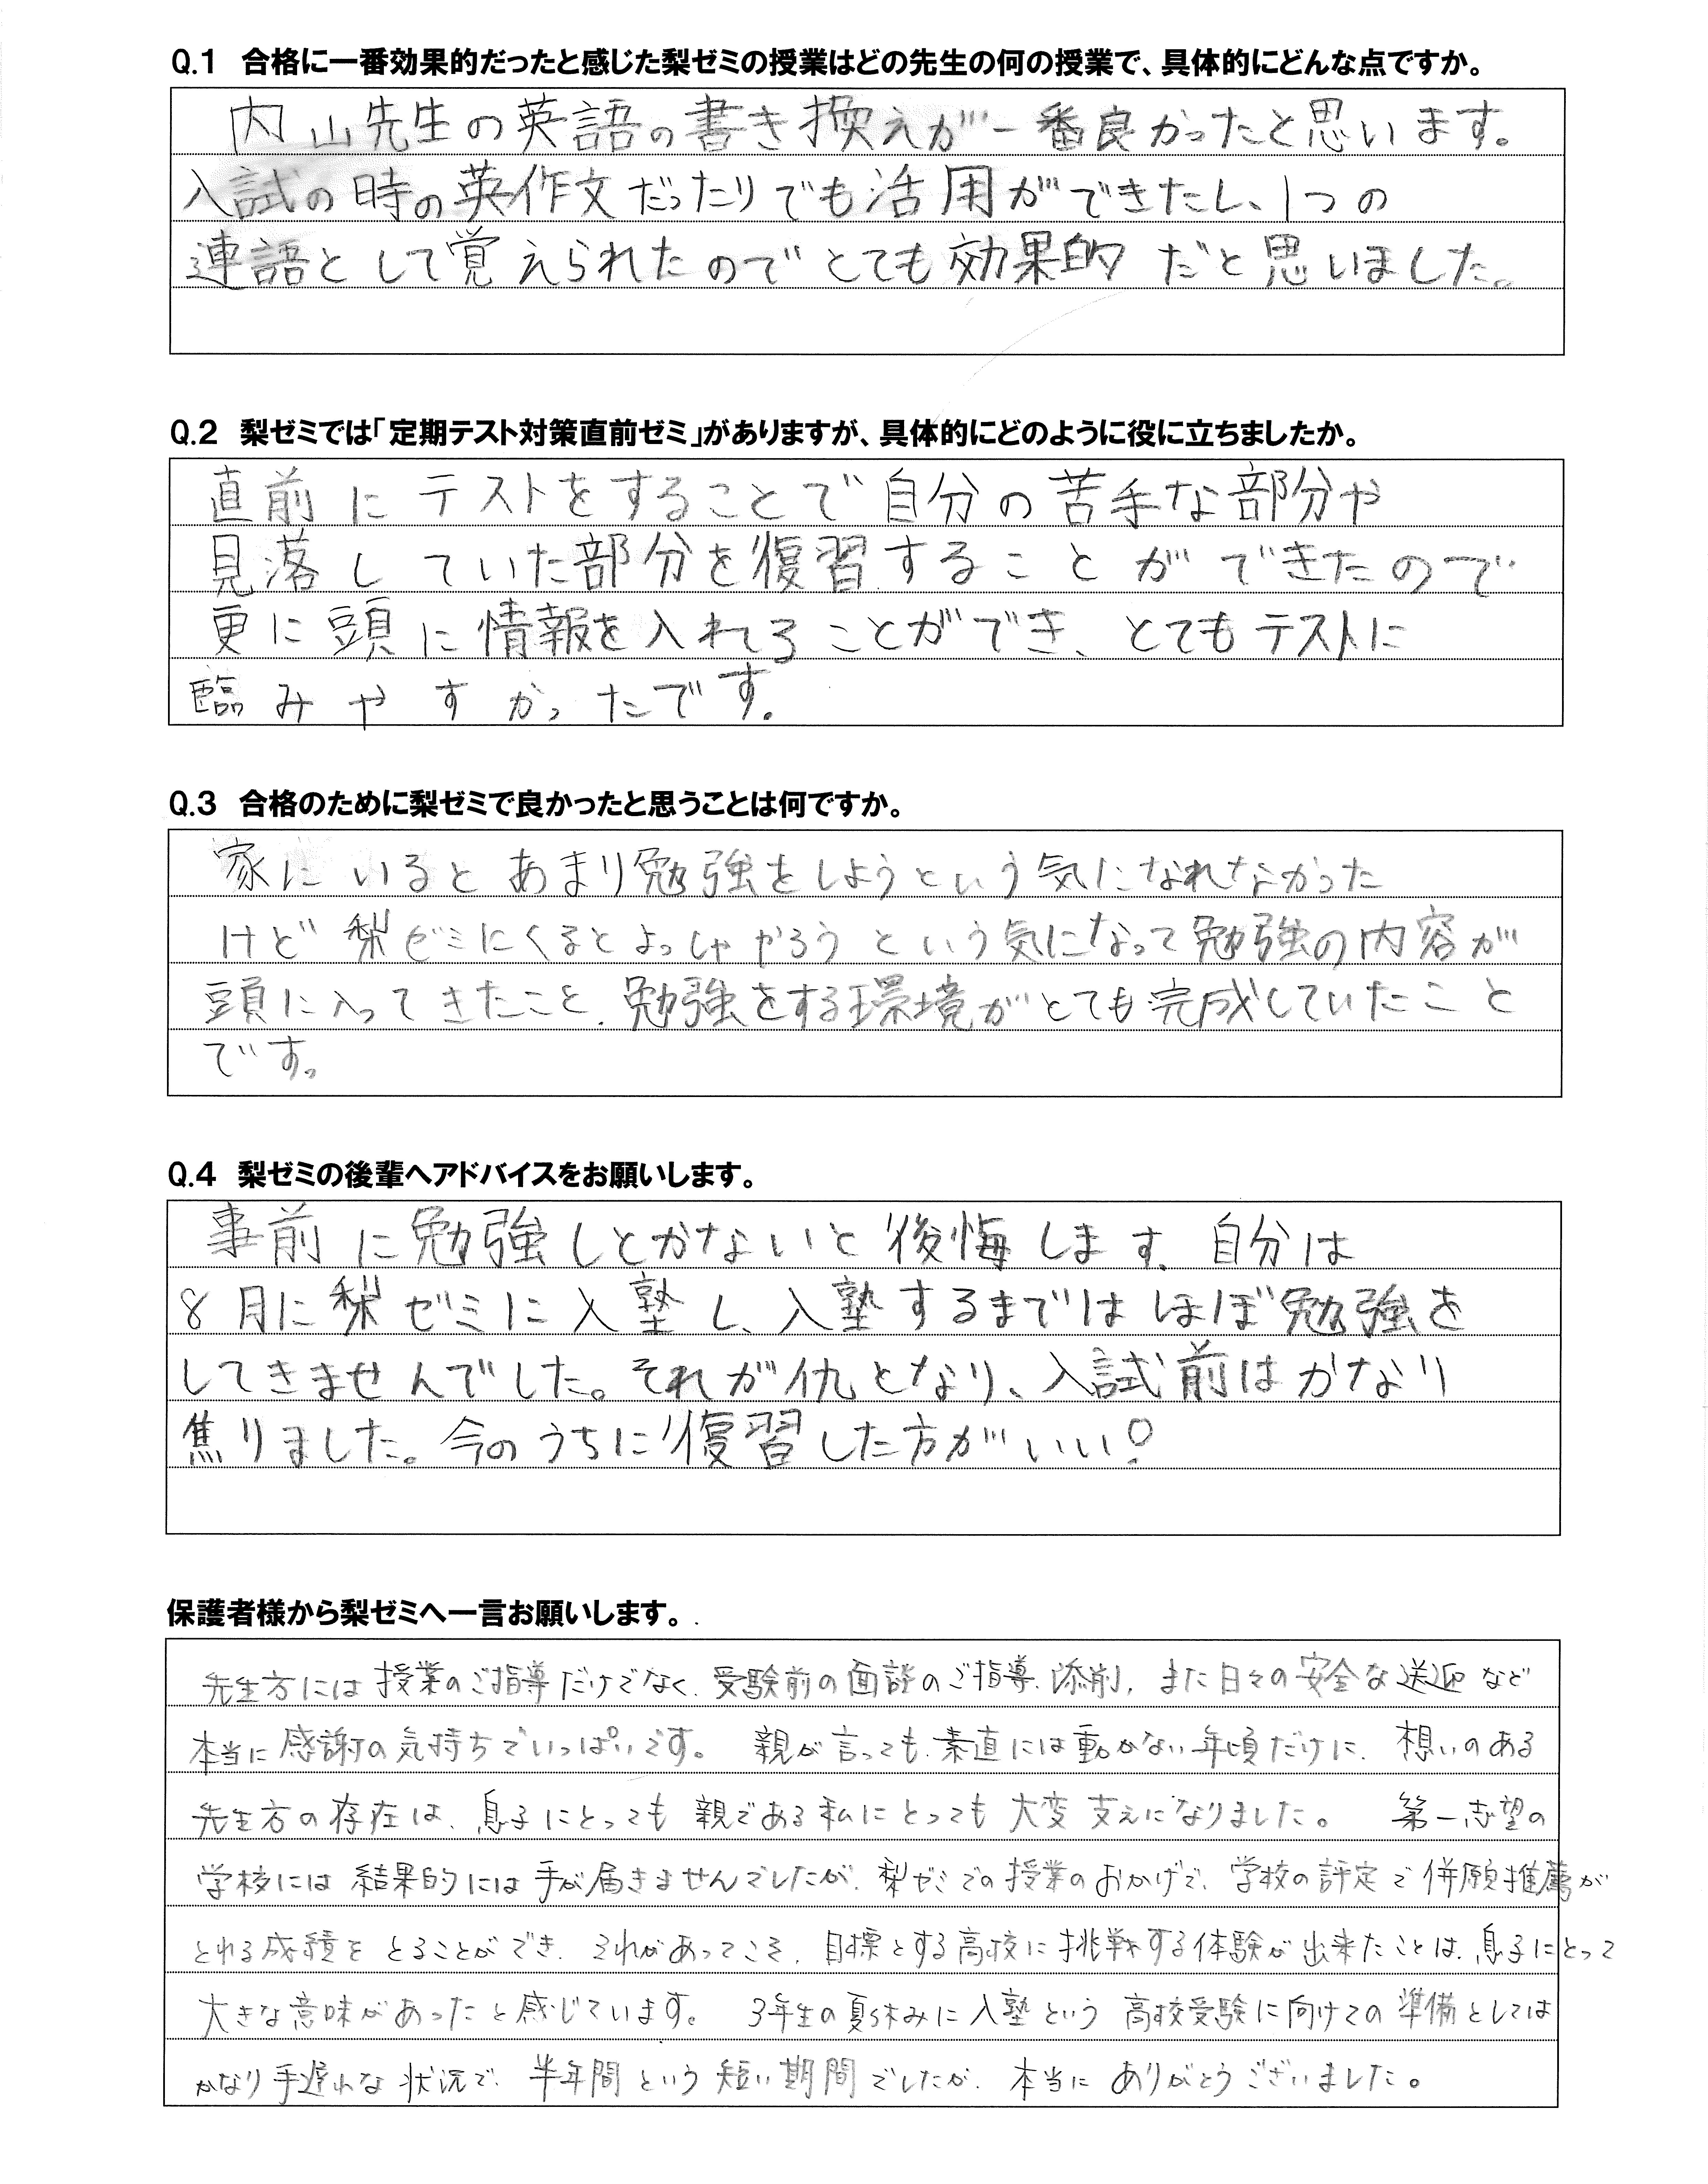 Q.1 合格に一番効果的だったと感じた梨ゼミの授業はどの先生の何の授業で、具体的にどんな点ですか。
内山先生の英語の書き換えが一番良かったと思います。
入試の時の英作文だったりでも活用ができたし、1つの
連語として覚えられたのでとても効果的だと思いました。
Q.2 梨ゼミでは「定期テスト対策直前ゼミ」がありますが、具体的にどのように役に立ちましたか。
直前にテストをすることで自分の苦手な部分や
見落していた部分を復習することができたので
更に頭に情報を入れてることができ、とてもテストに
臨みやすかったです。
Q.3 合格のために梨ゼミで良かったと思うことは何ですか。
家にいるとあまり勉強をしようという気になれなかった
けど梨ゼミにくるとよっしゃやろうという気になって勉強の内容が
頭に入ってきたこと、勉強をする環境がとても完成していたこと
です。
Q.4 梨ゼミの後輩へアドバイスをお願いします。
事前に勉強しとかないと後悔します。自分は
8月に梨ゼミに入塾し、入塾するまではほぼ勉強を
してきませんでした。それが仇となり、入試前はかなり
焦りました。今のうちに復習した方がいい!
保護者様から梨ゼミへ一言お願いします。
先生方には授業のご指導だけでなく、受験前の面談のご指導、添削、また日々の安全な送迎など
本当に感謝の気持ちでいっぱいです。親が言っても、素直には動かない年頃だけに、想いのある
先生方の存在は、息子にとっても親である私にとっても大変支えになりました。第一志望の
学校には結果的には手が届きませんでしたが、梨ゼミでの授業のおかげで、学校の評定で併願推薦が
とれる成績をとることができ、それがあってこそ、目標とする高校に挑戦する体験が出来たことは、息子にとって
大きな意味があったと感じています。3年生の夏休みに入塾という高校受験に向けての準備としては
かなり手遅れな状況で、半年間という短い期間でしたが、本当にありがとうございました。